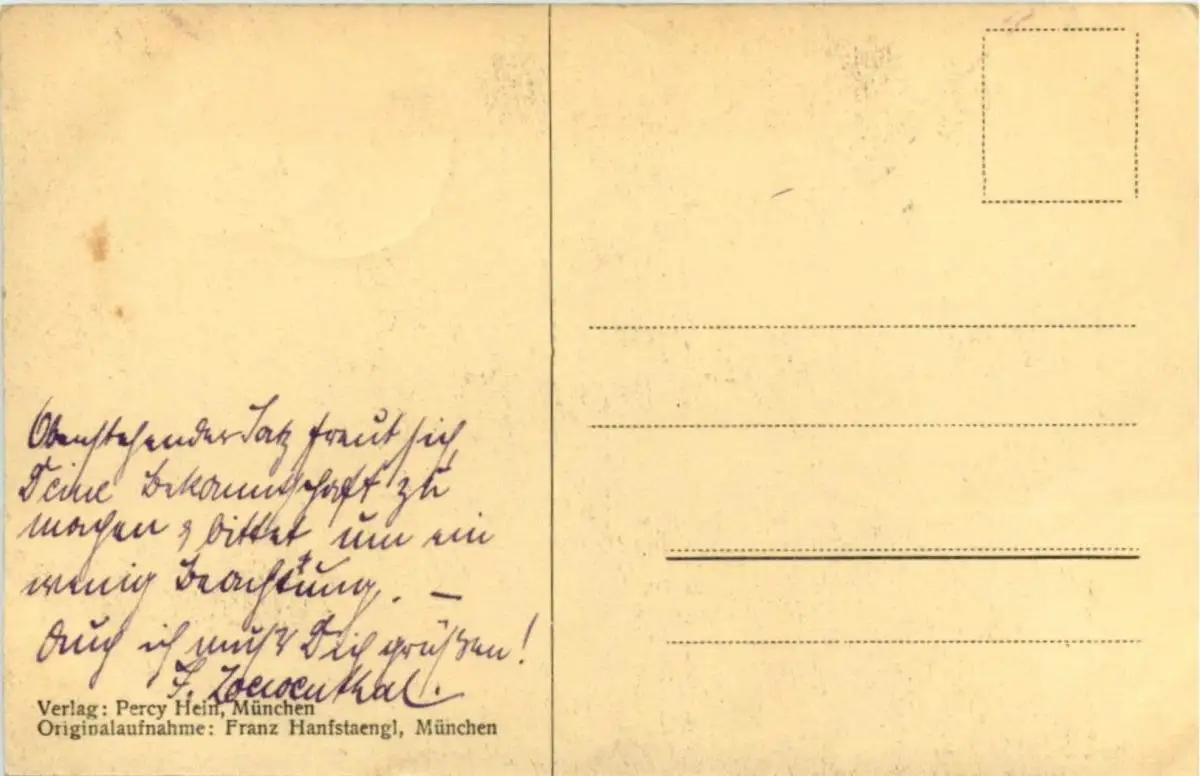 Obenstehender Satz freut sich,
Deine Bekanntschaft zu
machen & bittet um ein
wenig Beachtung. —
Auch ich muß Dich grüßen!
F. Loewenthal.
Verlag: Percy Hein, München
Originalaufnahme: Franz Hanfstaengl, München